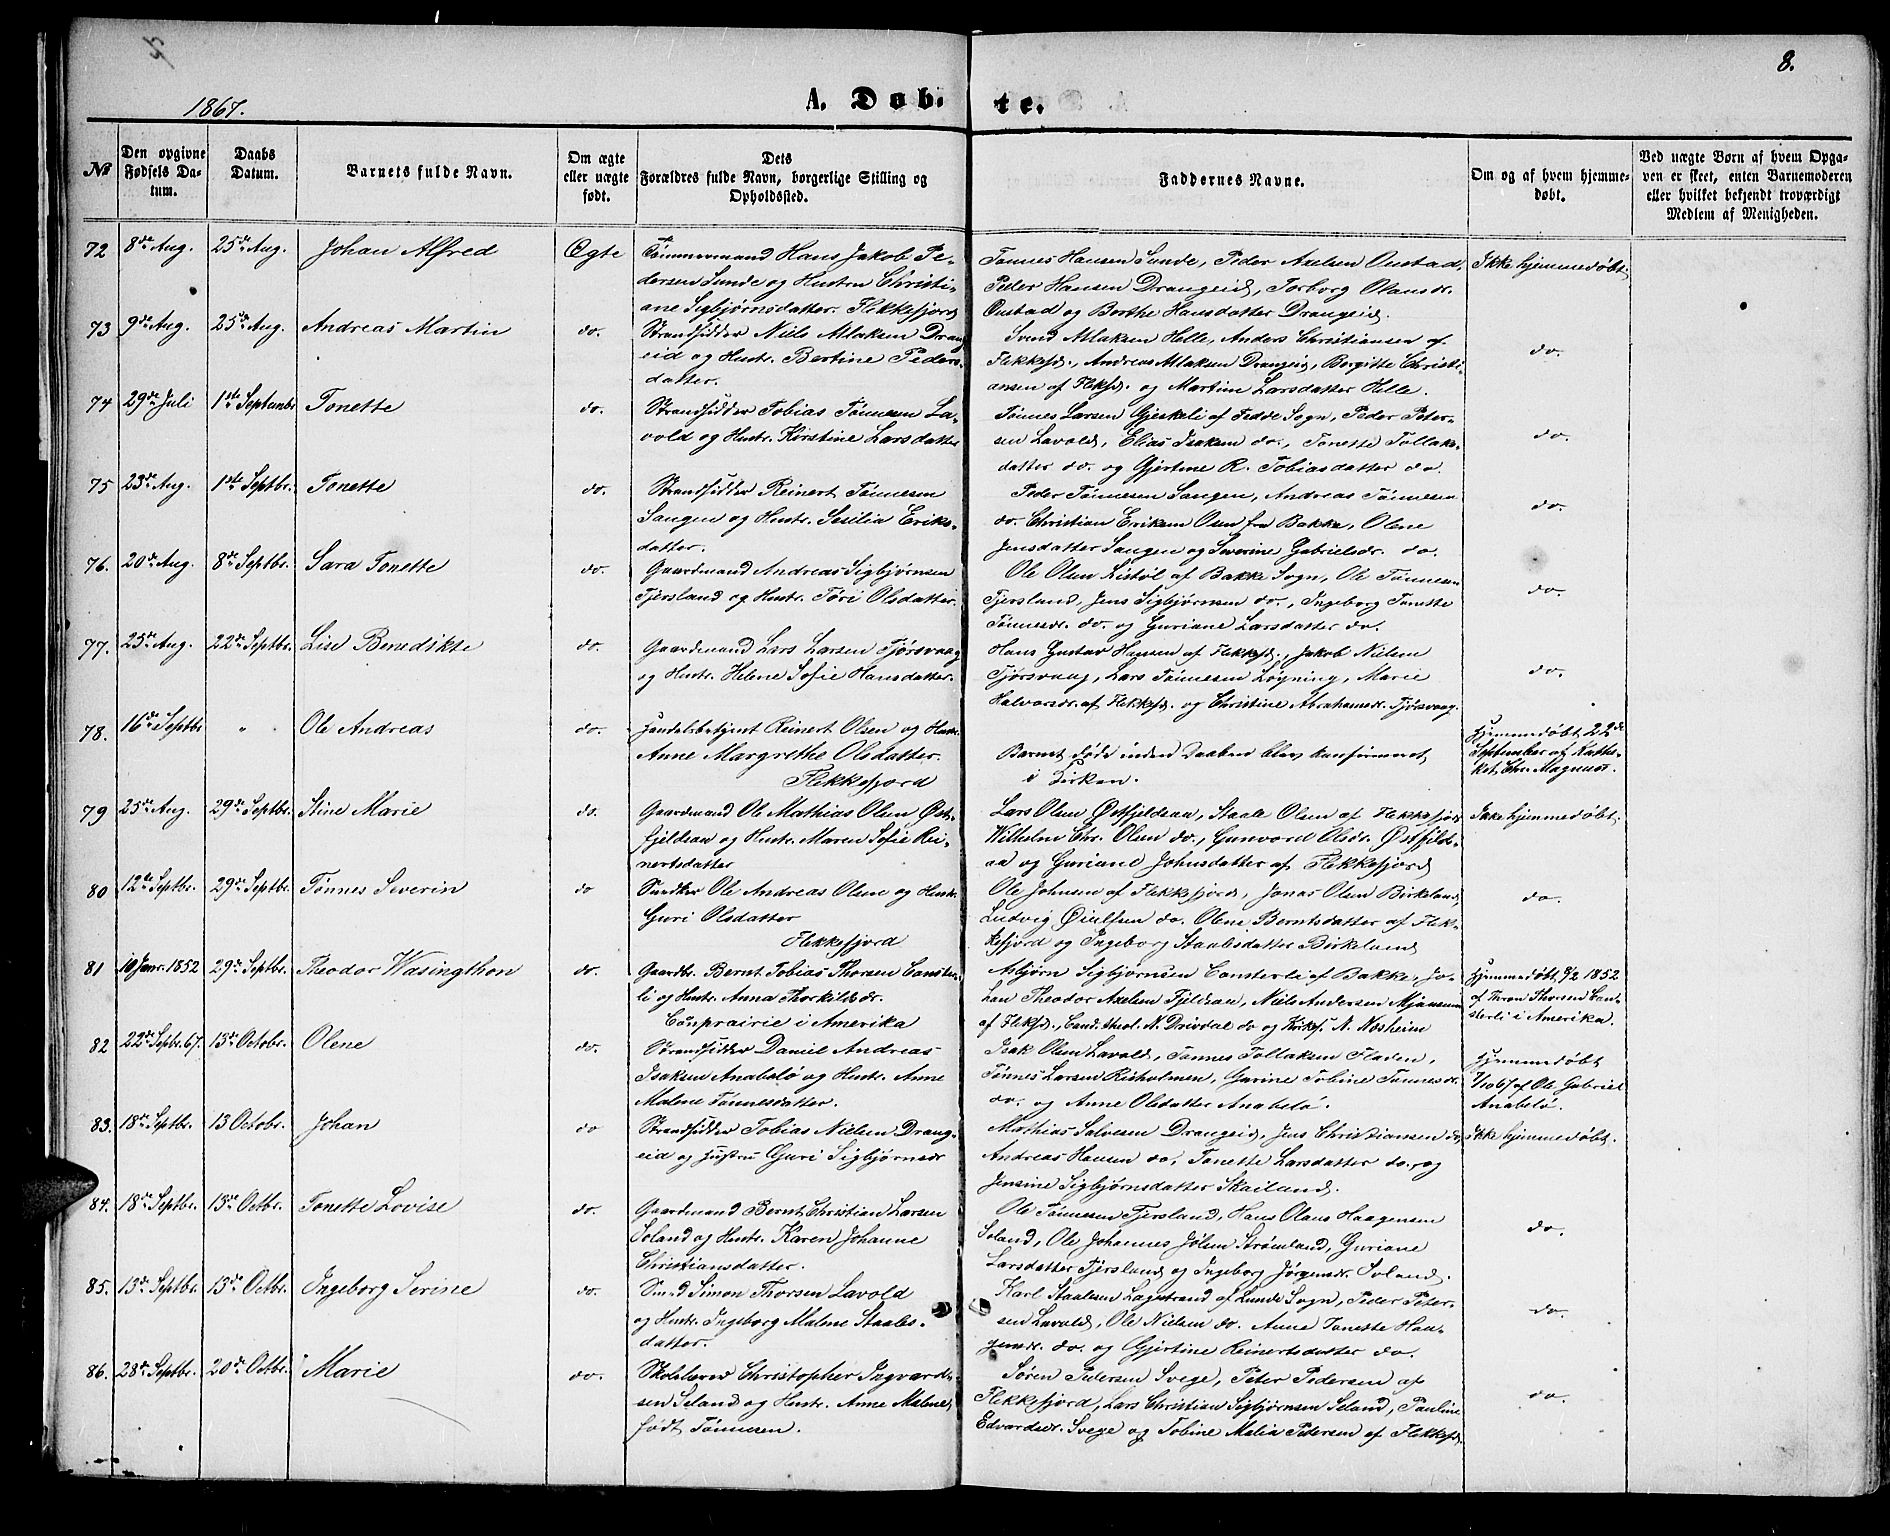 8.
1867.
A. Døbte.
No
Den opgivne Fødsels Datum.
Daabs Datum.
Barnets fulde Navn.
Om ægte eller uægte født.
Dets Forældres fulde Navn, borgerlige Stilling og Opholdssted.
Faddernes Navne.
Om og af hvem hjemmedøbt.
Ved uægte Børn af hvem Opgaven er skeet, enten Barnemoderen eller hvilket bekjendt troværdigt Medlem af Menigheden.
72 8de Aug. 25de Aug. Johan Alfred Ægte
Tømmermand Hans Jakob Pe-
dersen Sunde og Hustru Christi-
ane Sigbjørnsdatter. Flekkefjord
Tønnes Hansen Sunde, Peder Axelsen Oustad,
Peder Hansen Drangeid, Torborg Olausdr.
Oustad og Berthe Hansdatter Drangeid.
Ikke hjemmedøbt.
73 9de Aug. 25de Aug. Andreas Martin do.
Strandsidder Niels Atlaksen Drang
eid og Hustr. Bertine Peders-
datter.
Svend Atlaksen Helle, Anders Christiansen af
Flekkefd., Andreas Atlaksen Drangeid, Borgitte Christi-
ansen af Flekfd. og Martine Larsdatter Helle.
do.
74 29de Juli 1ste Septembr Tonette do.
Strandsidder Tobias Tønnesen La-
vold og Hustr. Kirstine Larsdatter
Tønnes Larsen Gjeskeli af Fedde Sogn, Peder Peter-
sen Lavold, Elias Isaksen do., Tonette Tollaks-
datter do. og Gjertine R. Tobiasdatter do.
do.
75 23de Aug. 1ste Septbr. Tonette do.
Strandsidder Reinert Tønnesen
Sangen og Hustr. Sesilia Eriks-
datter.
Peder Tønnesen Sangen, Andreas Tønnesen
do. Christian Eriksen Osen fra Bakke, Olene
Jensdatter Sangen og Severine Gabrielsdr. do.
do.
76. 20de Aug. 8de Septbr. Sara Tonette do.
Gaardmand Andreas Sigbjørnsen
Tjersland og Hustr. Tøri Olsdatter.
Ole Olsen Listøl af Bakke Sogn, Ole Tønnesen
Tjersland, Jens Sigbjørnsen do., Ingeborg Tonette
Tønnesdr. do. og Guriane Larsdatter do.
do.
77. 25de Aug. 22de Septbr. Lise Benedikte do.
Gaardmand Lars Larsen Tjørsvaag
og Hustr. Helene Sofie Hansdatter.
Hans Gustav Hansen af Flekkefd., Jakob Nielsen
Tjørsvaag, Lars Tønnesen Løgning, Marie
Halvorsdr. af Flekkefd. og Christine Abrahamsdr. Tjørsvaag.
do.
78. 16de Septbr " Ole Andreas do.
Handelsbetjent Reinert Olsen og Hustr.
Anne Margrethe Olsdatter.
Flekkefjord
Barnet døde inden Daaben blev konfirmeret
i Kirken.
Hjemmedøbt 22de
September af Kathe-
ket, Chr. Magnus.
79 25de Aug. 29de Septbr. Stine Marie do.
Gaardmand Ole Mathias Olsen Øst-
fjeldsaa og Hustr. Maren Sofie Rei-
nertsdatter
Lars Olsen Østfjeldsaa, Staale Olsen af Flekkefjord
Wilhelm Chr. Olsen do., Gunvord Olsdr. Østfjelds-
aa og Guriane Johnsdatter af Flekkefjord
Ikke hjemmedøbt.
80 12te Septbr. 29de Septbr. Tønnes Severin do
Snedker Ole Andreas Olsen og Hustr.
Guri Olsdatter
Flekkefjord
Ole Johnsen af Flekkefjord, Jonas Olsen Birkeland,
Ludvig Øiulfsen do. Olene Berntsdatter af Flek-
kefjord og Ingeborg Staalesdatter Birkeland
do.
81 10 Janr. 1852 29de Septbr. Theodor Wasingthon do.
Gaardbr. Bernt Tobias Thorsen Eanster-
li og Hustr. Anna Thorkildsdr.
Conprairie i Amerika
Asbjørn Sigbjørnsen Eansterli af Bakke, Jo-
han Theodor Axelsen Fjeldsaa, Niels Andersen Mjaasund
af Flekfd., Cand. theol. N. Drivdal do og Kirkes. N. Nosheim
Hjemmedøbt 8/2 1852
af Thron Thorsen Ean-
sterli i Amerika.
82 22de Septbr. 67. 13de Octobr. Olene do.
Strandsidder Daniel Andreas
Isaksen Anabelø og Hustr. Anne
Malene Tønnesdatter.
Isak Olsen Lavold, Tønnes Tollaksen Fladen,
Tønnes Larsen Risholmen, Gurine Tobine Tønnesdr.
do. og Anne Olsdatter Anabelø.
Hjemmedøbt
7/10 67 af Ole Gabriel
Anabelø.
83. 18de Septbr. 13 Octobr. Johan do
Strandsidder Tobias Nielsen Drang-
eid og Hustru Guri Sigbjørnsdr
Mathias Salvesen Drangeid, Jens Christiansen do,
Andreas Hansen do, Tonette Larsdatter do. og
Jensine Sigbjørnsdatter Skailand.
Ikke hjemmedøbt.
84. 18de Septbr. 13de Octbr. Tonette Lovise do.
Gaardmand Bernt Christian Larsen
Soland og Hustr. Karen Johanne
Christiansdatter.
Ole Tønnesen Tjersland, Hans Olaus Haagensen
Soland, Ole Johannes Jølsen Strømland, Guriane
Larsdatter Tjersland og Ingeborg Jørgensdr. Soland.
do.
85. 13de Septbr. 13de Octbr. Ingeborg Serine do.
Smed Simon Thorsen Lavold
og Hustr. Ingeborg Malene Staales-
datter.
Karl Staalesen Lagestrand af Lunde Sogn, Peder Peter-
sen Lavold, Ole Nielsen do. Anne Tonette Haa-
gensdr. do. og Gjertine Reinertsdatter do.
do.
86. 28de Septbr. 20de Octbr. Marie do.
Skolelærer Christopher Ingvard-
sen Seland og Hustr. Anne Malene
født Tønnesen.
Søren Petersen Svege, Peter Pedersen af
Flekkefjord, Lars Christian Sigbjørnsen Seland, Pauline
Edvardsdr. Svege og Tobine Malia Petersen af Flekkefd.
do.